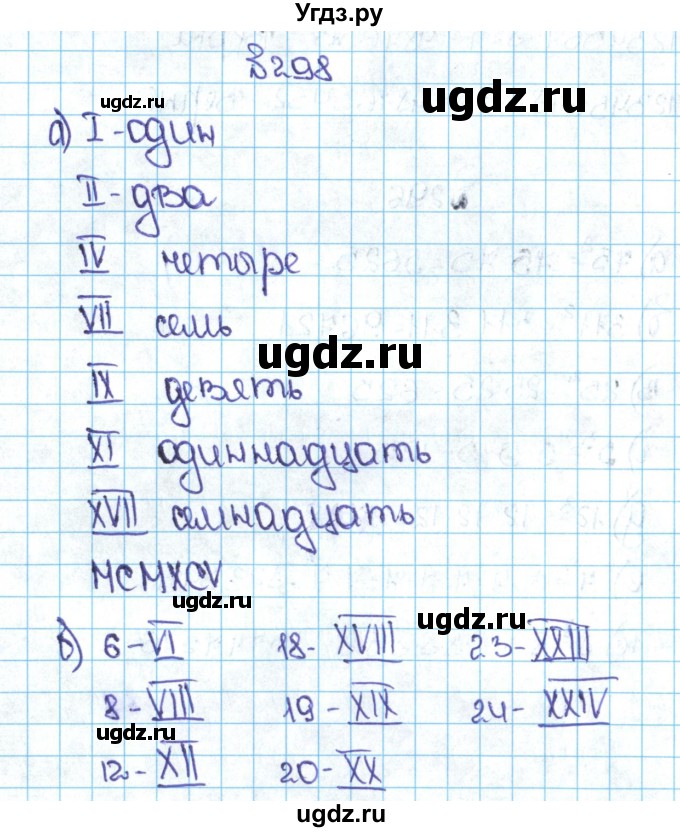 Угдз.ру
В298
ugdz.ru
ugdz.ru
а) I-один
II-два
IV четыре
VII семь
ugdz.ru
IX девять
XI одиннадцать
XVII семнадцать
ugdz.ru
MCMXCV
ugdz.ru
ugdz.ru
б) 6-VI 18-XVIII 23-XXIII
8-VIII 19-XIX 24-XXIV
ugdz.ru
12-XII 20-XX
ugdz.ru